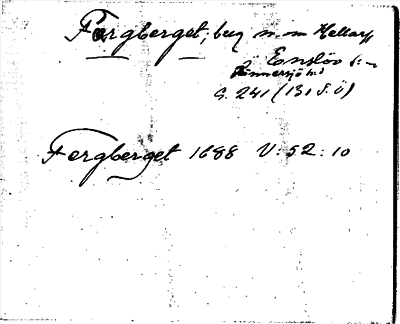 Fargberget, berg m. m Hellarp
Enslöv s:n
Simmersjö hd
G. 241 (131 S.Ö)
Fergberget 1688 V: 52: 10